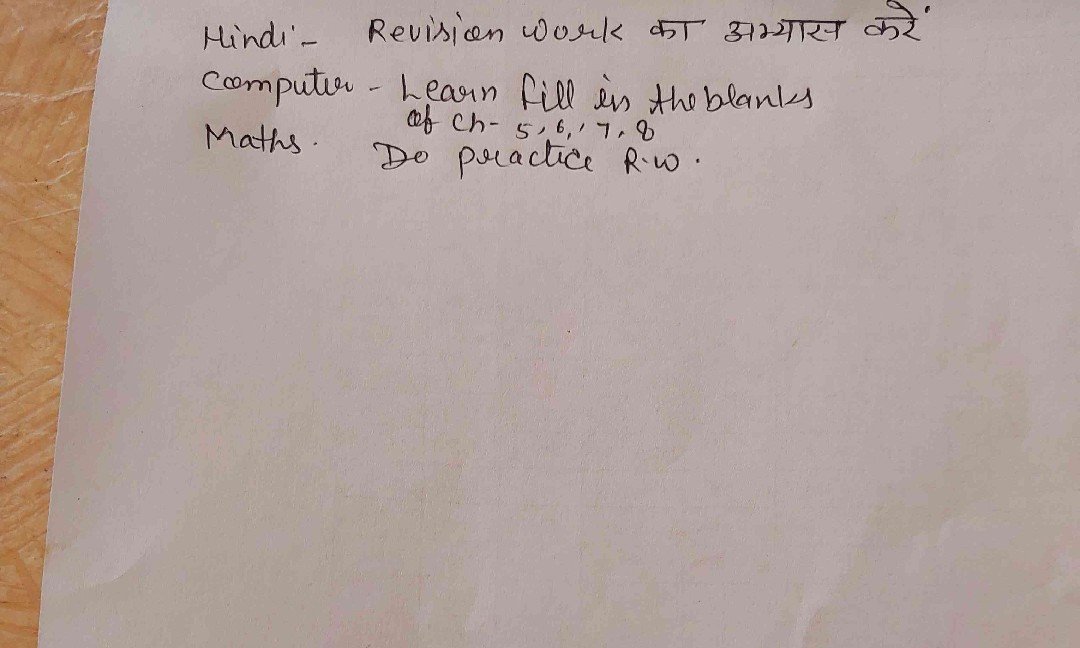 Hindi - Revision work का अभ्यास करें
Computer - Learn fill in the blanks
of Ch- 5, 6, 7, 8
Maths. Do practice R.w.